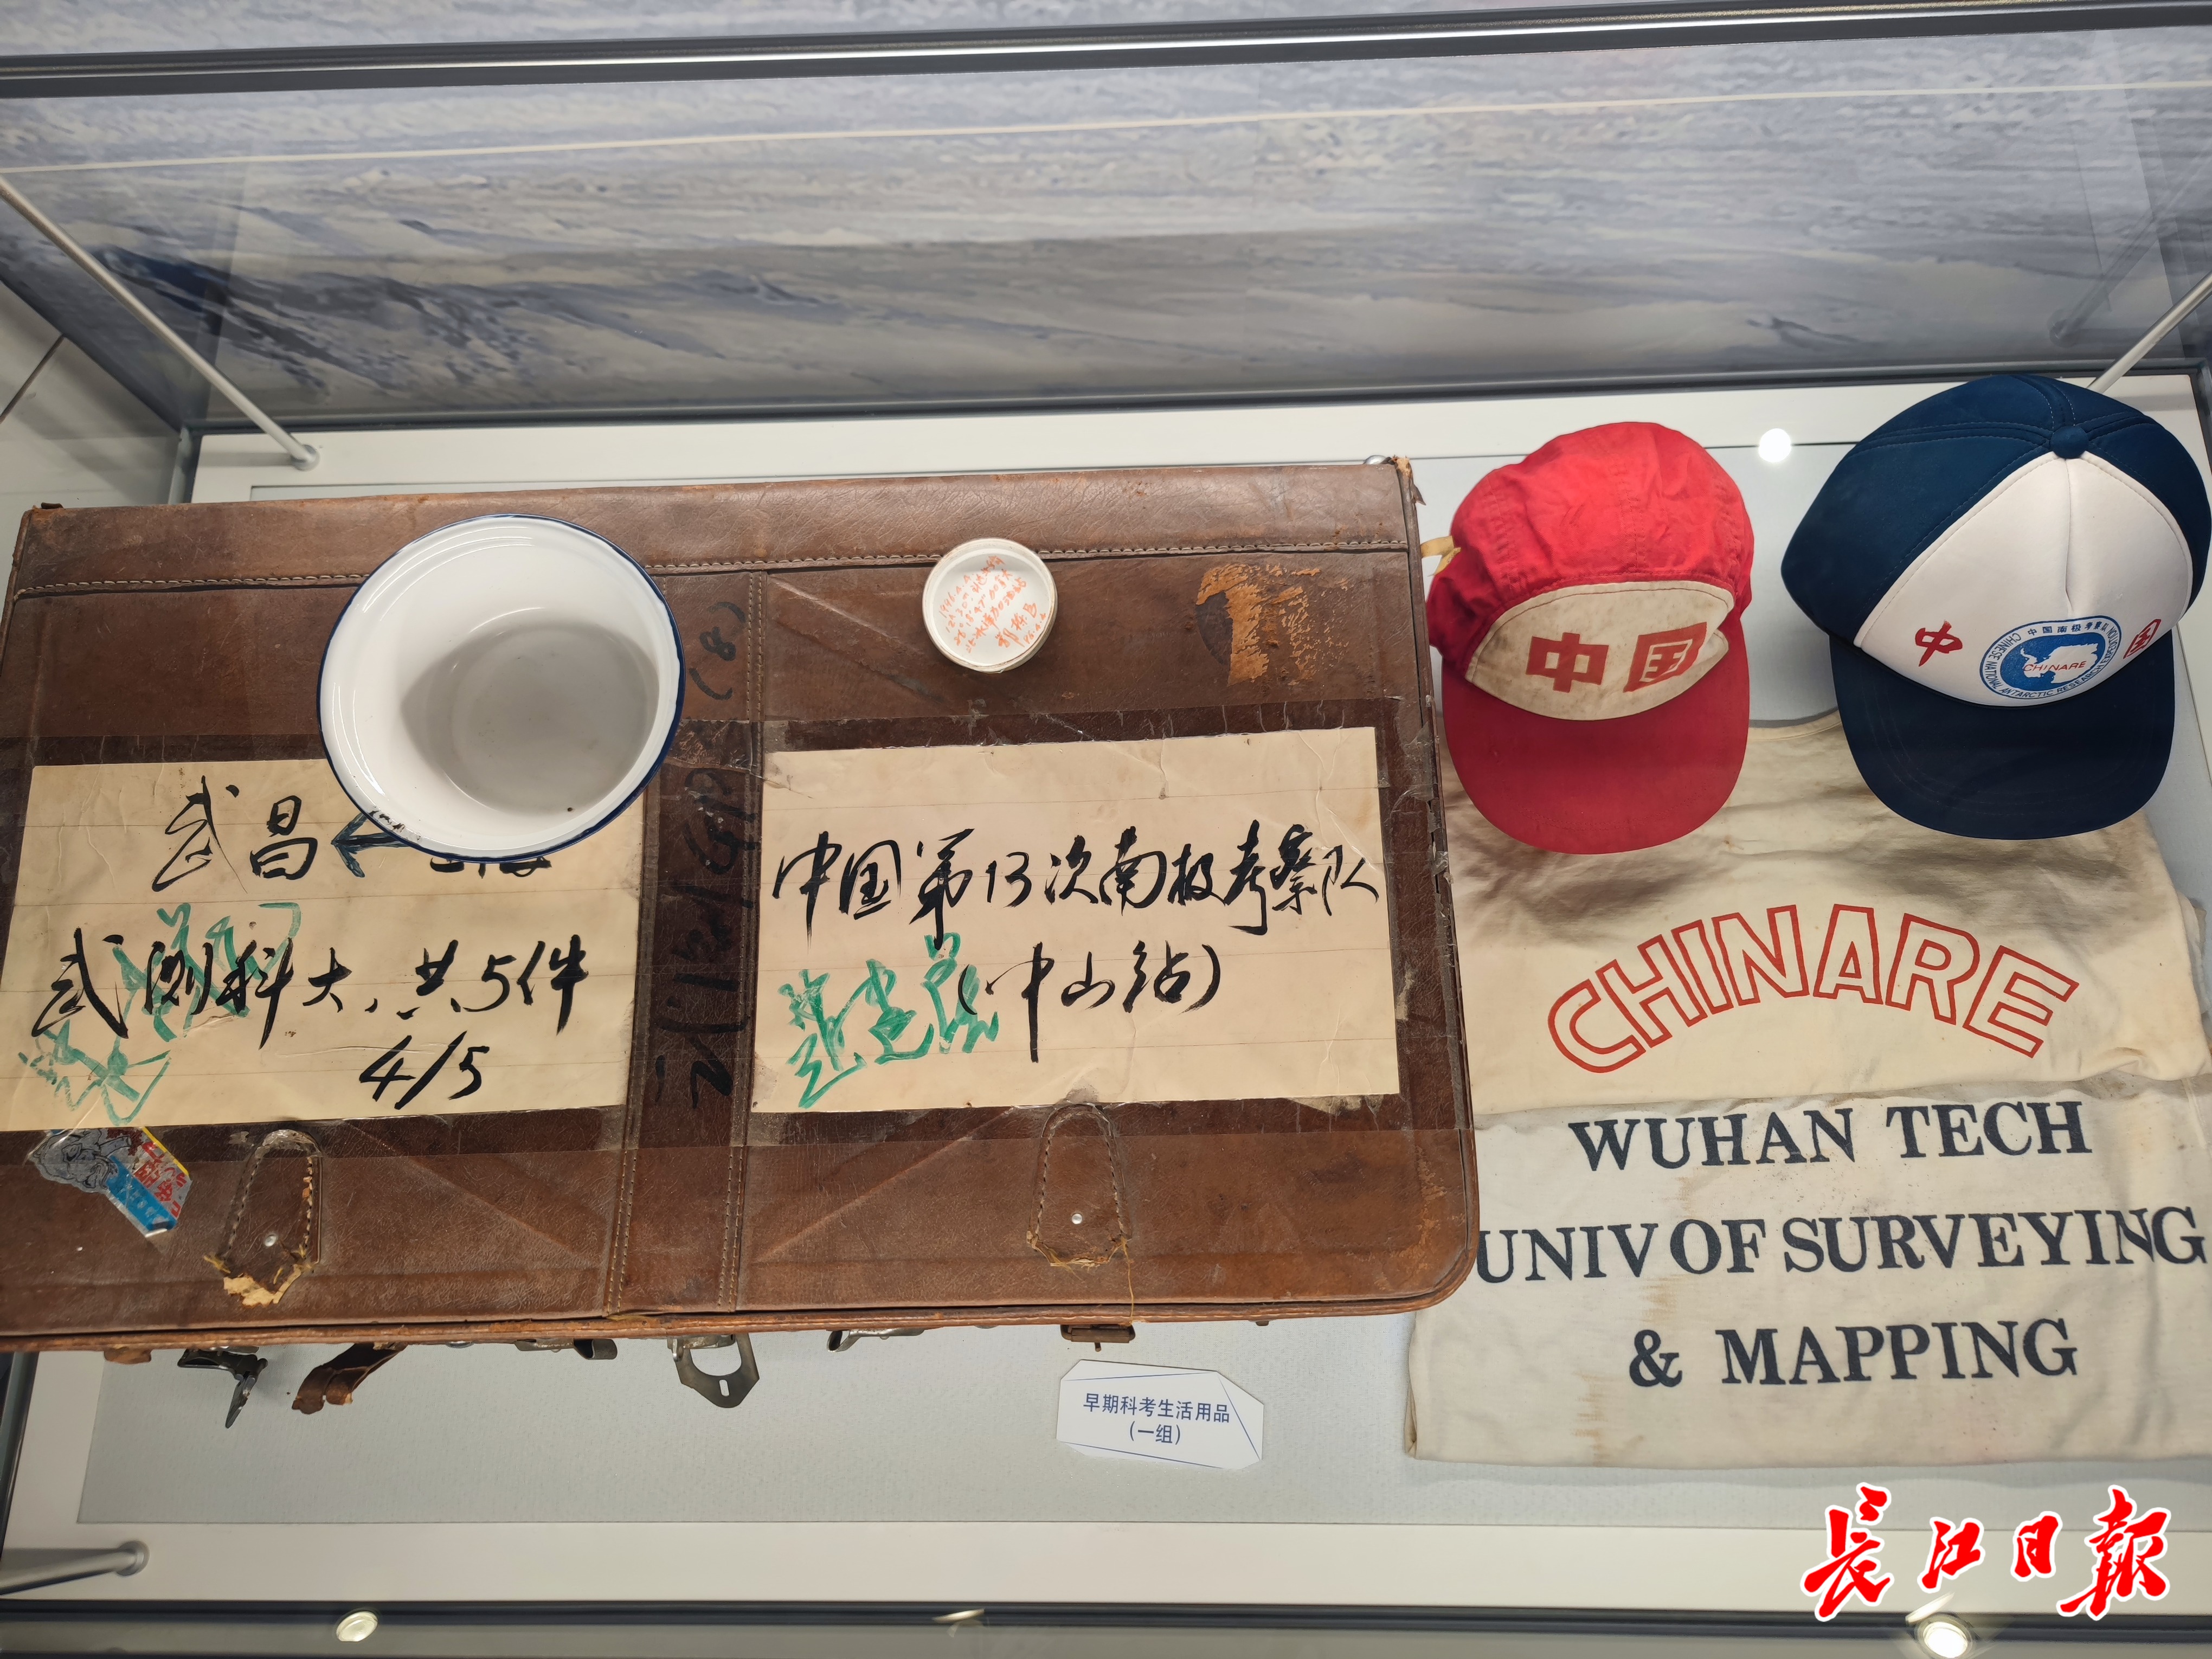 武昌
武测科大、共5件
4/5
(8)
中国第13次南极考察队
(中山站)
中国
中国
中国南极考察队
CHINESE NATIONAL ANTARCTIC RESEARCH EXPEDITION
CHINARE
CHINARE
WUHAN TECH
UNIV OF SURVEYING
& MAPPING
早期科考生活用品
(一组)
长江日報